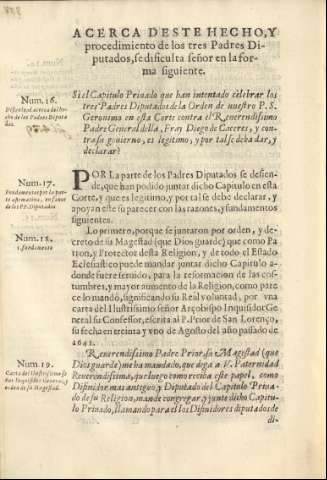 ACERCA DESTE HECHO, Y
procedimiento de los tres Padres Di-
putados, se dificulta señor en la for-
ma siguiente.
Num. 16.
Si el Capitulo Priuado que han intentado celebrar los
tres Padres Diputados de la Orden de nuestro P. S.
Geronimo en esta Corte contra el Reuerendissimo
Padre General della, Fray Diego de Caceres, y con-
tra su gouierno, es legitimo, y por tal se deba dar, y
declarar?
Num. 17.
POR La parte de los Padres Diputados se defien-
de, que han podido juntar dicho Capitulo en esta
Corte, y que es legitimo, y por tal se debe declarar, y
apoyan este su parecer con las razones, y fundamentos
siguientes.
Num. 18.
1. fundamento
Lo primero, porque se juntaron por orden, y de-
creto de su Magestad (que Dios guarde) que como Pa-
tron, y Protector desta Religion, y de todo el Estado
Eclesiastico puede mandar juntar dicho Capitulo a-
donde fuere seruido, para la reformacion de las cos-
tumbres, y mayor aumento de la Religion, como pare-
ce lo mandó, significando su Real voluntad, por vna
carta del Ilustrissimo señor Arçobispo Inquisidor Gene-
ral su Confessor, escrita al P. Prior de San Lorenço,
su fecha en treinta y vno de Agosto del año passado de
1642.
Num. 19.
Reuerendissimo Padre Prior, su Magestad (que
Dios guarde) me ha mandado, que diga a V. Paternidad
Reuerendissima, que luego como reciba este papel, como
Difinidor mas antiguo, y Diputado del Capitulo Priua-
do de su Religion, mande congregar, y junte dicho Capitu-
lo Priuado, llamando para el los Difinidores diputados de
di-